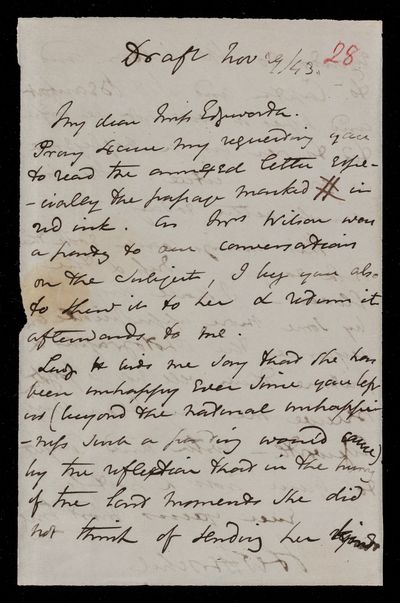 Draft Nov 29/43. 28
My dear Miss Edgeworth.
Pray excuse my requesting you
to read the annexed letter espe-
-cially the passage marked # in
red ink. As Mrs Wilson was
a party to our conversations
on the subject, I beg you also
to shew it to her & return it
afterwards to me.
Lady H bids me say that she has
been unhappy ever since you left
us (beyond the natural unhappi-
-ness such a parting would cause)
by the reflection that in the hurry
of the last moments she did
not think of sending her